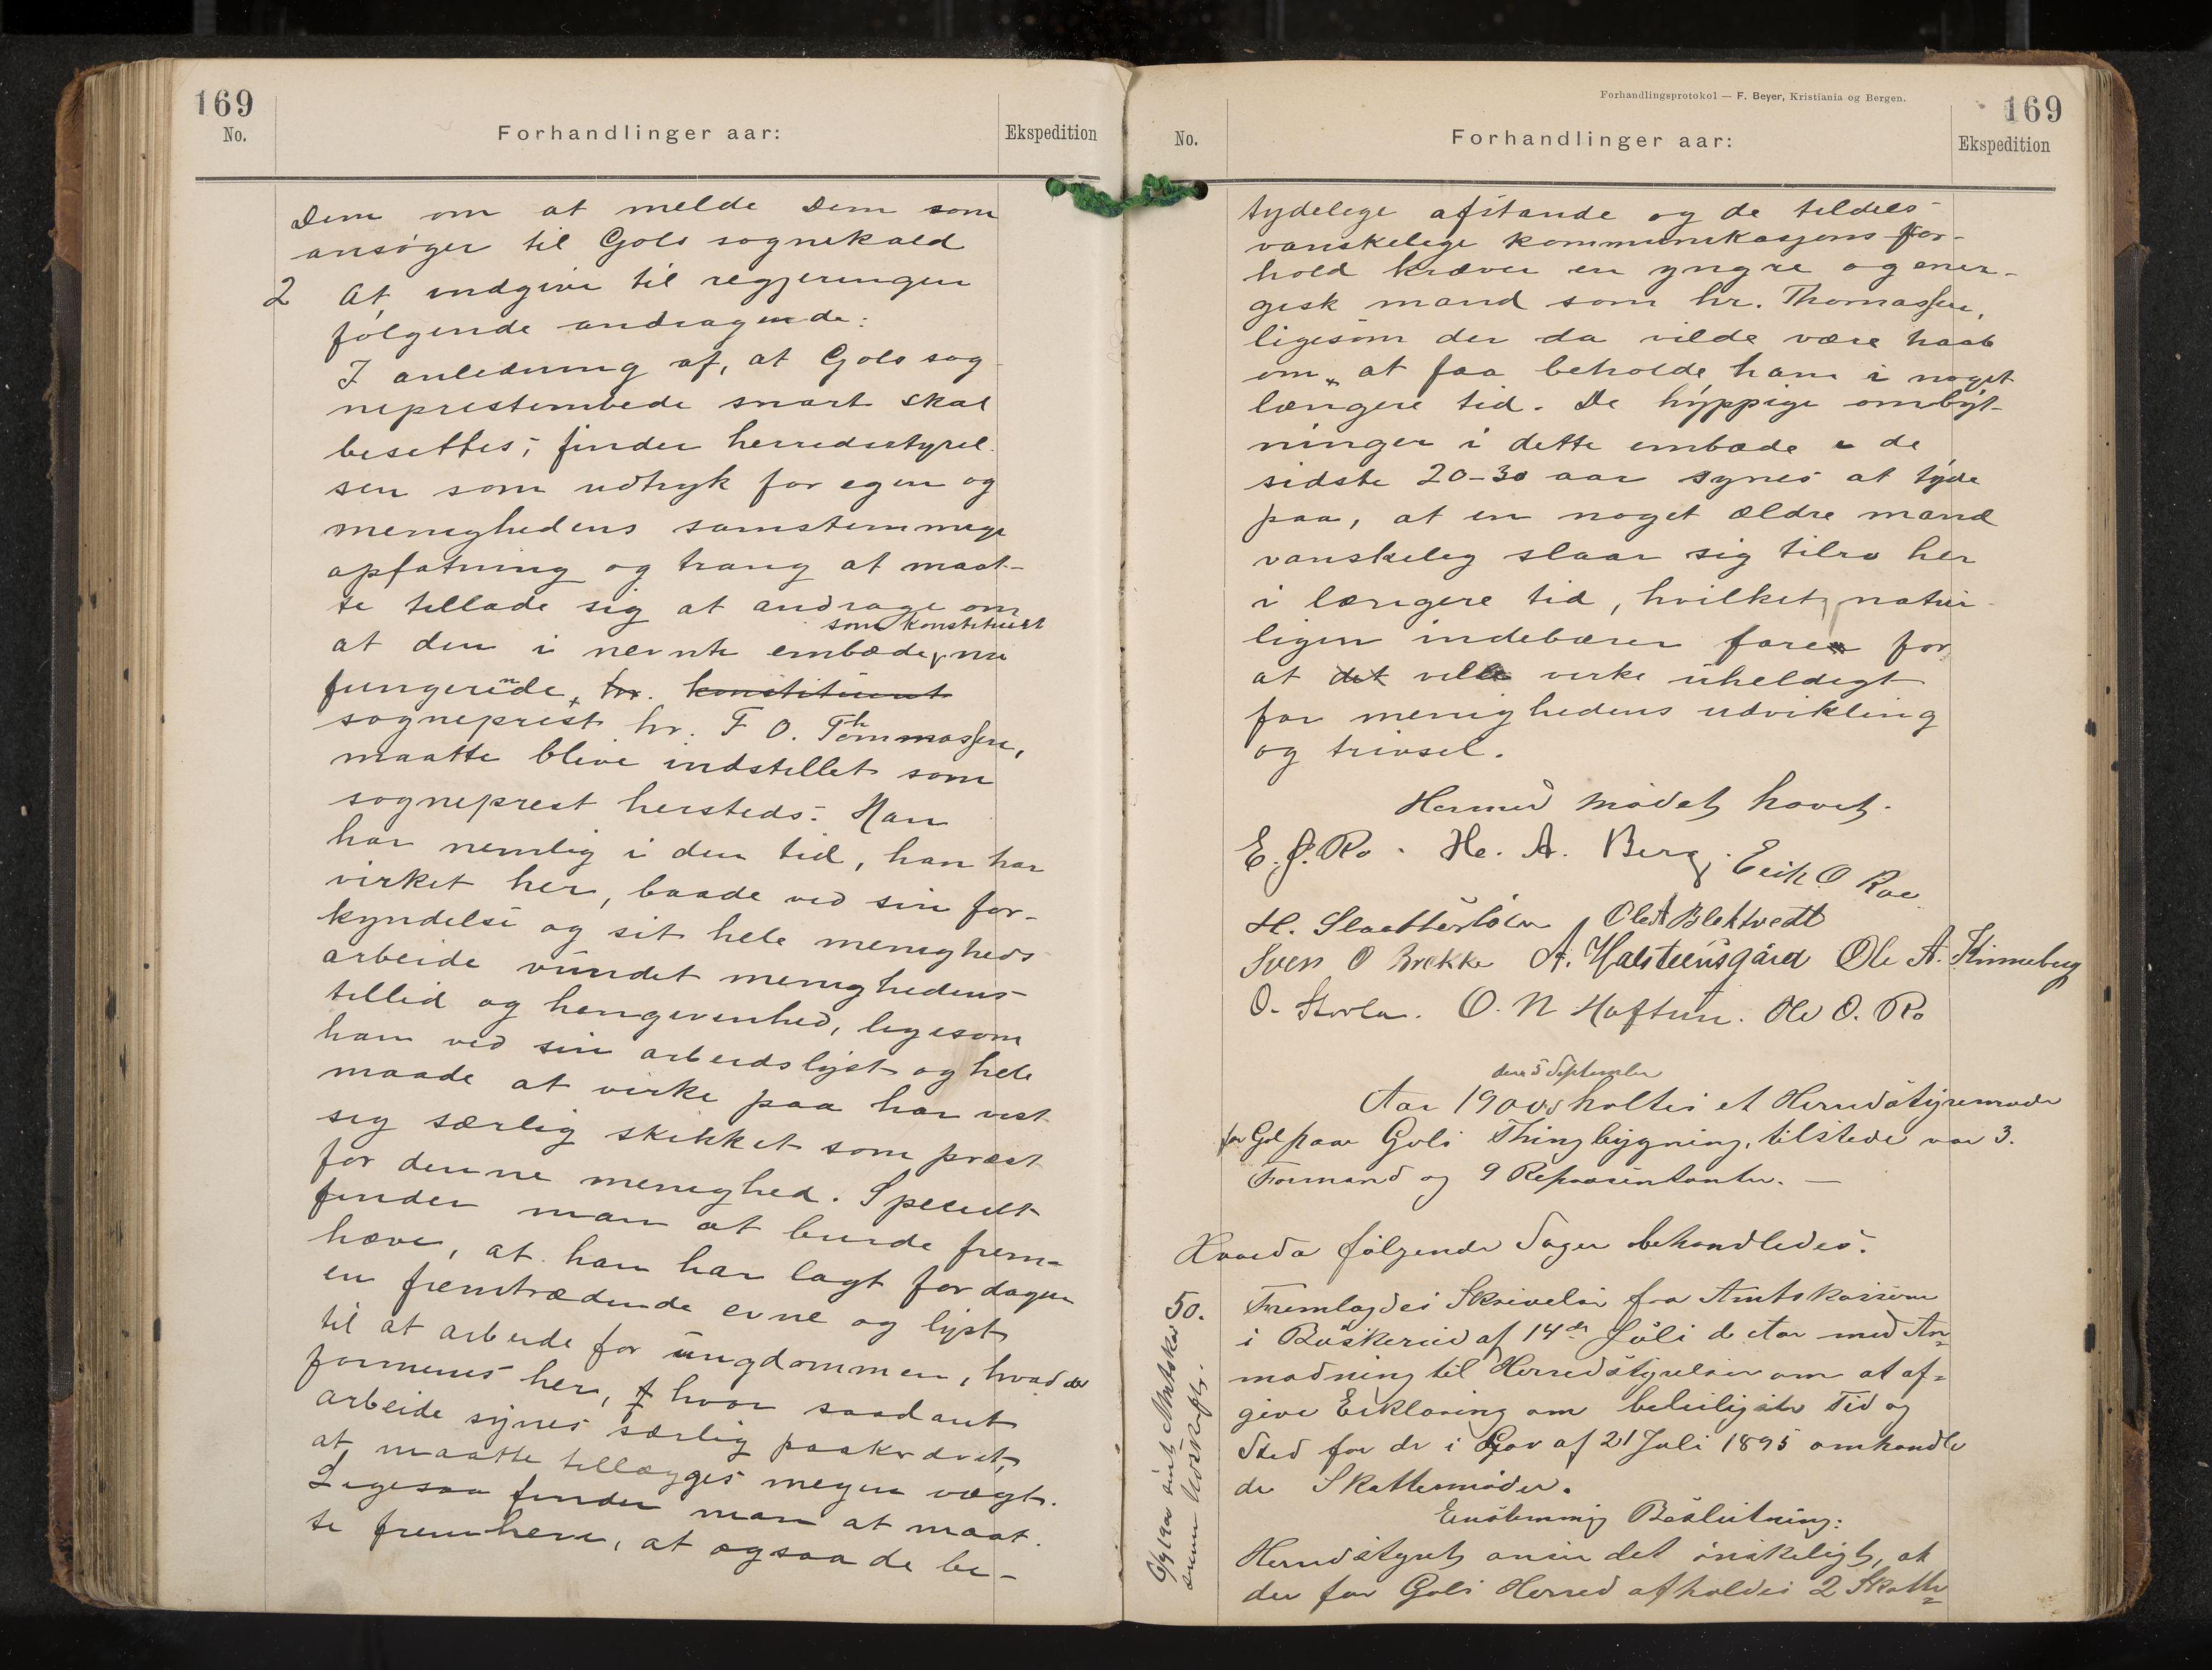 169
No.
Forhandlinger aar:
Ekspedition
Dem om at melde Dem som
ansøger til Gols sognekald
2 At indgive til regjeringen
følgende andragende:
I anledning af, at Gols sog
neprestembede snart skal
besettes, finder herredsstyrel
sen som udtryk for egen og
menighedens samstemmige
opfatning og trang at maat-
te tillade sig at andrage om
som konstitueret
at den i nevnte embede, nu
fungerende, hr. konstitueret
sogneprest hr. F O. Thommassen,
maatte blive indstillet som
sogneprest hersteds. Han
har nemlig i den tid, han har
virket her, baade ved sin for-
kyndelse og sit hele menigheds
arbeide vundet menighedens
tillid og hengivenhed, ligesom
han ved sin arbeidslyst og hele
maade at virke paa har vist
sig særlig skikket som prest
for denne menighed. Specielt
finder man at burde frem-
hæve, at han har lagt for dagen
en fremtrædende evne og lyst
til at arbeide for ungdommen, hvad der
formenes her, hvor saadant
arbeide synes særlig paakrævet,
at maatte tillægges megen vægt.
Ligesaa finder man at maat
te fremheve, at ogsaa de be-
Forhandlingsprotokol — F. Beyer, Kristiania og Bergen.
169
No.
Forhandlinger aar:
Ekspedition
tydelige afstande og de tildels
vanskelige kommunikasjons for-
hold kræver en yngre og ener-
gisk mand som hr. Thomassen,
ligesom der da vilde være haab
om at faa beholde ham i noget
længere tid. De hyppige ombyt-
ninger i dette embede i de
sidste 20-30 aar synes at tyde
paa, at en noget ældre mand
vanskelig slaar sig tilro her
i længere tid, hvilket natur
ligen indebærer faren for
at det ville virke uheldigt
for menighedens udvikling
og trivsel.
Hermed mødet hævet.
E. J. Ro. He. A. Berg. Erik O Roe
H. Slaattersløen Ole A Blektvedt
Sven O Brekke A. Halsteensgård Ole A. Kinneberg
O. Storla. O. N Haftun. Ole O. Ro
den 5 September
Aar 1900 holtes et Herredstyremøde
for Gol paa Gols Thingbygning, tilstede var 3.
Formænd og 9 Repræsentanter. —
Hvorda følgende Sager behandledes:
50. Fremlagdes Skrivelse fra Amtskasseren
i Buskerud af 14de Juli d. Aar med An-
modning til Herredstyrelsen om at af-
give Erklæring om beleiligste Tid og
Sted for de i Lov af 21 Juli 1895 omhandle
de Skattemøder.
Enstemmig Beslutning:
Herredstyret anser det ønskeligt, at
der for Gols Herred afholdes 2 Skatte-